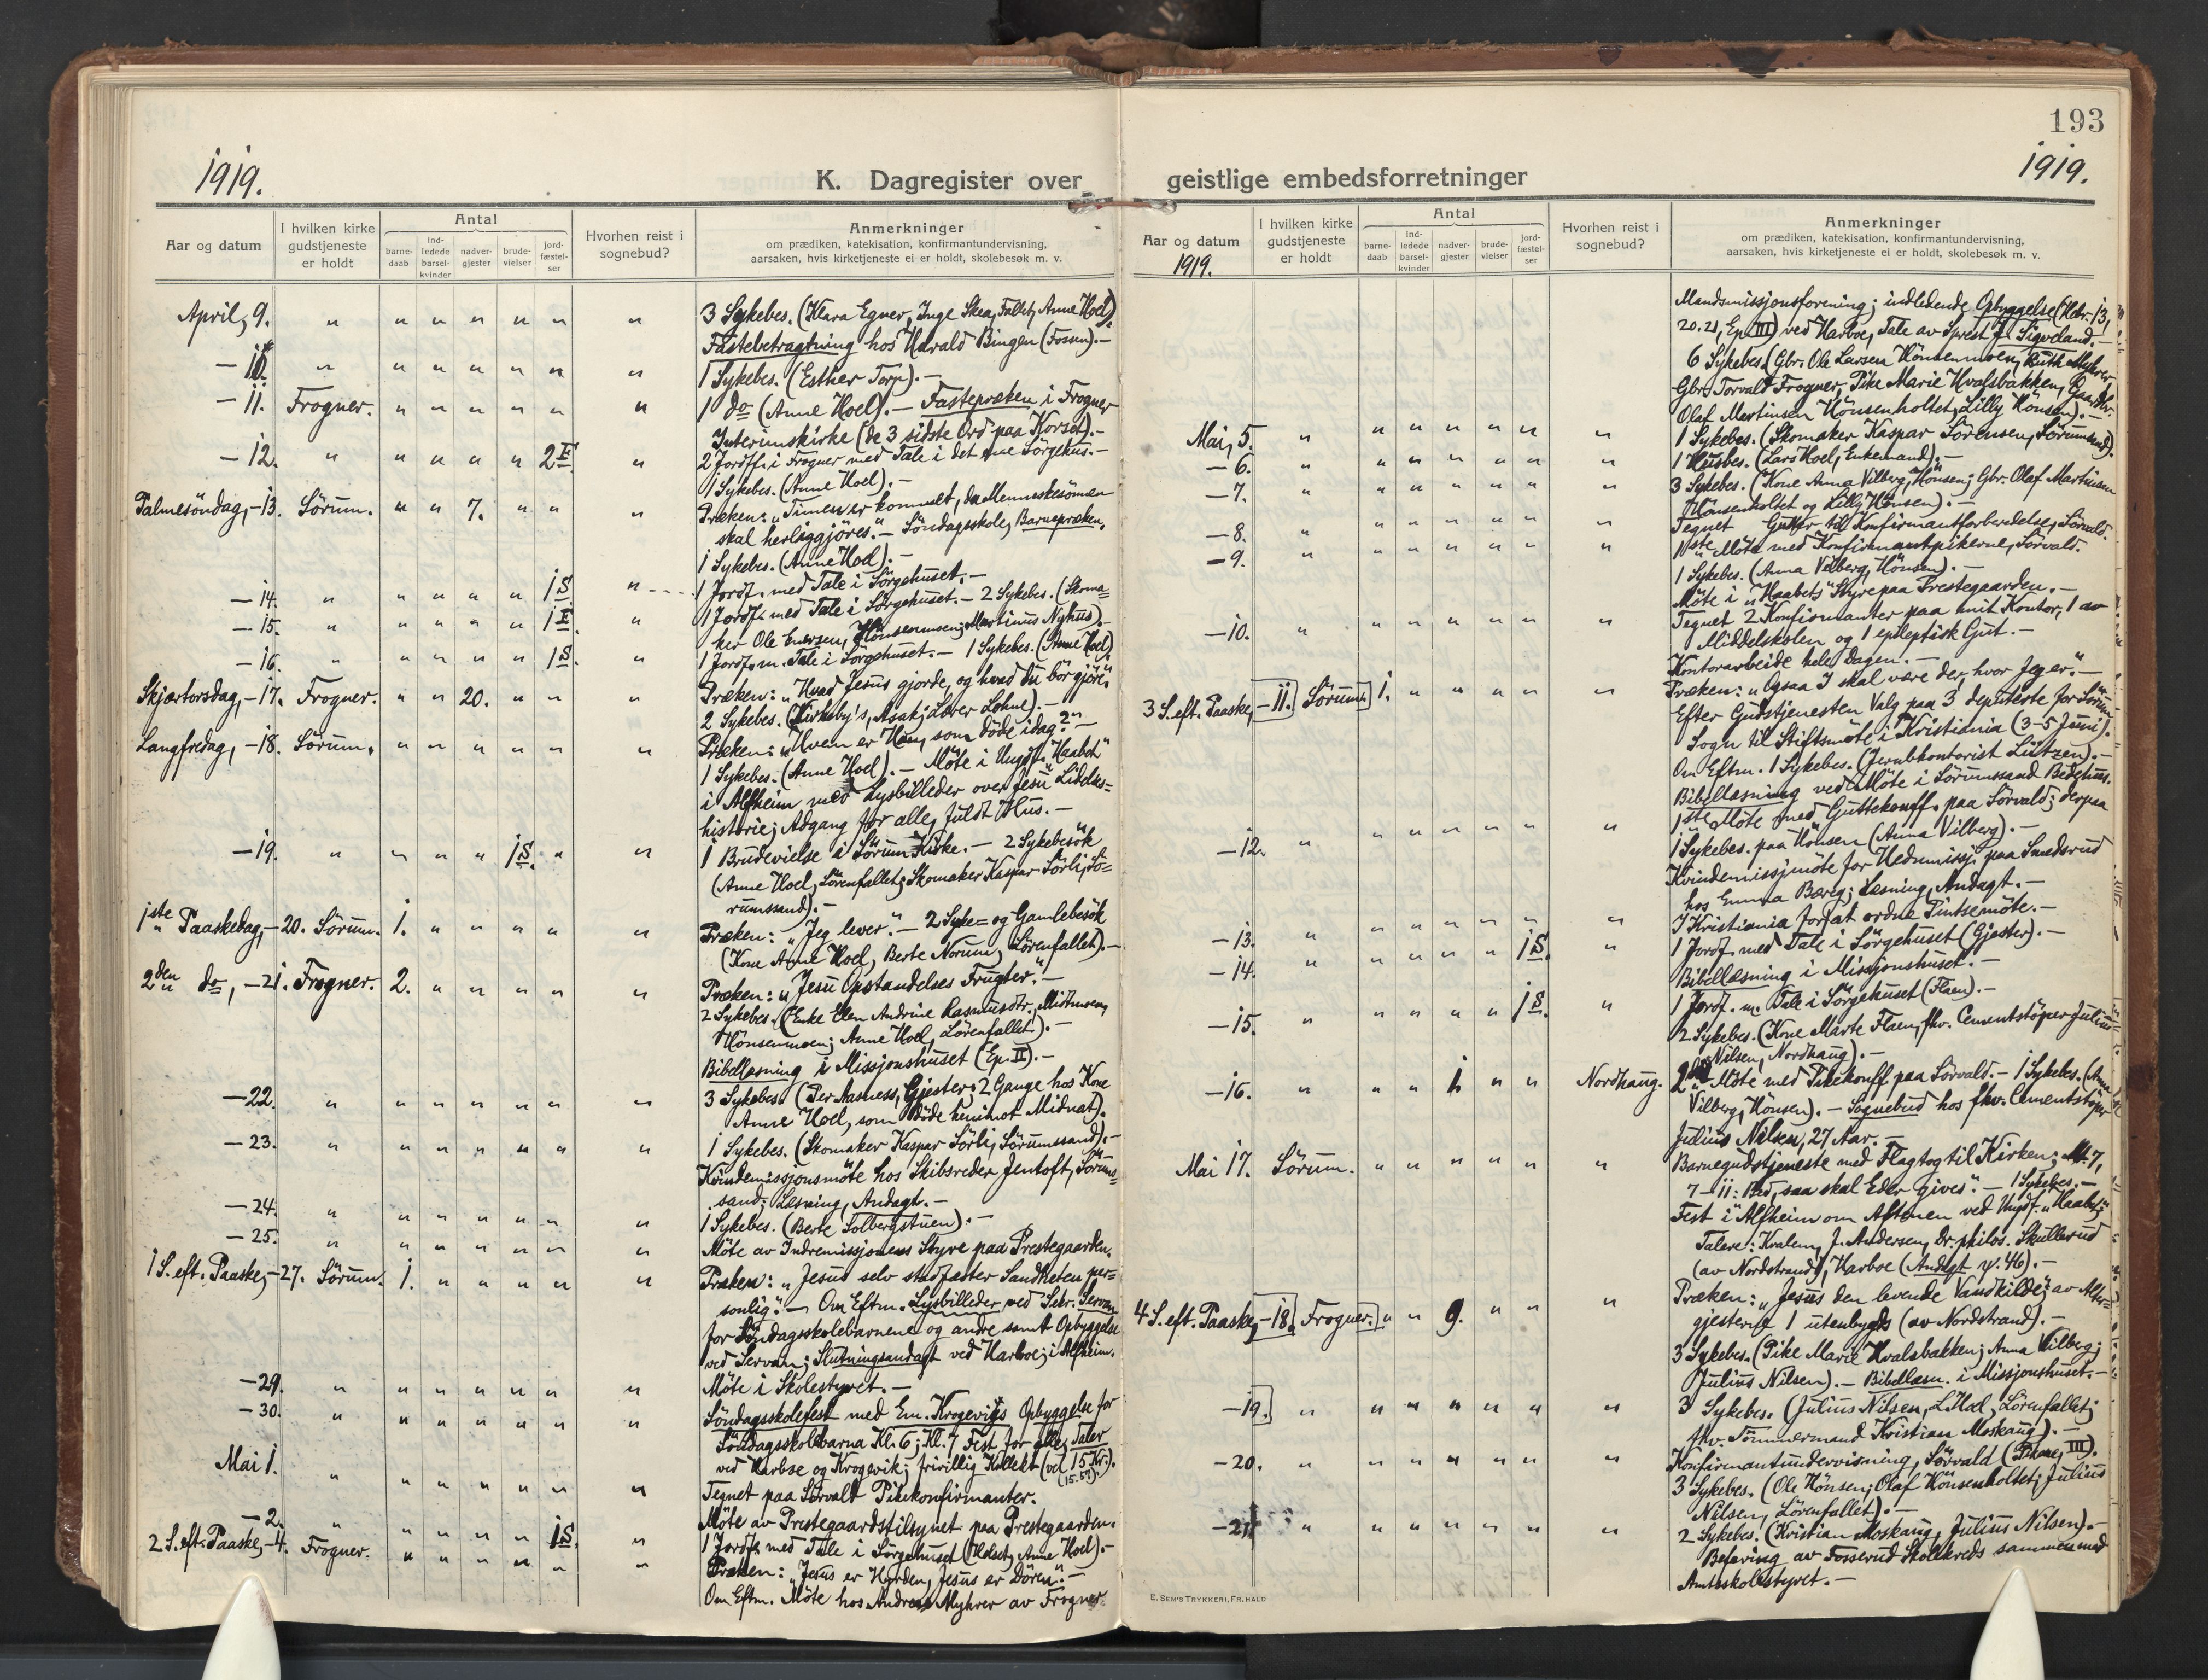 193
1919.
1919.
K. Dagregister over geistlige embedsforretninger
Aar og datum
I hvilken kirke gudstjeneste er holdt
Antal
barne-daab
ind-ledede barsel-kvinder
nadver-gjester
brude-vielser
jord-fæstel-ser
Hvorhen reist i sognebud?
Anmerkninger
om prædiken, katekisation, konfirmantundervisning,
aarsaken, hvis kirketjeneste ei er holdt, skolebesøk m. v.
April, 9. " " " " " " " 3 Sykebes. (Klara Egner, Inge Skea, Fallet, Anne Hoel).
Fastebetragtning hos Harald Bingen (Fossen). —
— 10. " " " " " " " 1 Sykebes. (Esther Torp). —
— 11. Frogner. " " " " " " 1 do (Anne Hoel). — Fastepræken i Frogner
Interimskirke (de 3 sidste Ord paa Korset). —
— 12. " " " " " 2 F. " 2 Jordf. i Frogner med Tale i det ene Sörgehus. —
1 Sykebes. (Anne Hoel). —
Palmesöndag, — 13. Sörum. " " 7. " " " Præken: „Timen er kommet, da Menneskesönnen
skal herliggjöres." — Söndagsskole, Barnepræken.
1 Sykebes. (Anne Hoel). —
— 14. " " " " " 1 S. " 1 Jordf. med Tale i Sörgehuset. —
— 15. " " " " " 1 F. " 1 Jordf. med Tale i Sörgehuset. — 2 Sykebes. (Skoma=
ker Ole Enersen, Hönsenmoen; Martinus Nyhus). —
— 16. " " " " " 1 S. " 1 Jordf. m. Tale i Sörgehuset. — 1 Sykebes. (Anne Hoel)
Skjærtorsdag, — 17. Frogner. " " 20. " " " Præken: „Hvad Jesus gjorde, og hvad du bör gjöre."
2 Sykebes. (Kirkeby's, Asak; Lærer Lohne). —
Langfredag, — 18. Sörum. " " " " " " Præken: „Hvem er Han, som döde idag?" —
1 Sykebes. (Anne Hoel). — Möte i Ungdf. „Haabet"
i Alfheim med Lysbilleder over Jesu Lidelses=
historie; Adgang for alle, fuldt Hus. —
— 19. " " " " 1 S. " " 1 Brudevielse i Sörum Kirke. — 2 Sykebesök
(Anne Hoel, Sörenfallet; Skomaker Kaspar Sörli, Sö=
rumssand). —
1ste Paaskedag, — 20. Sörum. 1. " " " " " Præken: „Jeg lever." — 2 Syke= og Gamlebesök
(Kone Anne Hoel, Berte Norum, Sörenfallet). —
2den do, — 21. Frogner. 2. " " " " " Præken: „Jesu Opstandelses Frugter." —
2 Sykebes. (Enke Elen Andrine Rasmusdtr. Midtmoen,
Hönsenmoen; Anne Hoel, Lörenfallet). —
Bibellæsning i Missjonshuset (Ep. II). —
— 22. " " " " " " " 3 Sykebes. (Per Aasness, Gjester; 2 Gange hos Kone
Anne Hoel, som döde henimot Midnat).
— 23. " " " " " " " 1 Sykebes. (Skomaker Kaspar Sörli, Sörumssand). —
Kvindemissjonsmöte hos Skibsreder Jentoft, Sörums=
sand; Læsning, Andagt. —
— 24. " " " " " " " 1 Sykebes. (Berte Solbergstuen). —
— 25. " " " " " " " Möte av Indremissjonens Styre paa Prestegaarden.
1 S. eft. Paaske, — 27. Sörum. 1. " " " " " Præken: „Jesus selv stadfæster Sandheten per=
sonlig." — Om Eftm. Lysbilleder ved Sekr. Servan
for Söndagsskolebarnene og andre samt Opbyggelse
ved Servan; Slutningsandagt ved Harboe; i Alfheim.
— 29. " " " " " " " Möte i Skolestyret. —
— 30. " " " " " " " Söndagsskolefest med Em. Krogeviks Opbyggelse for
Söndagsskolebarna Kl. 6; Kl. 7 Fest for alle, Taler
ved Harboe og Krogevik; frivillig Kollekt (vel 15 Kr.).
Mai 1. " " " " " " " Tegnet paa Sörvald Pikekonfirmanter.
— 2. " " " " " 1 S. " Möte av Prestegaardstilsynet paa Prestegaarden.
1 Jordf. med Tale i Sörgehuset (Holset, Anne Hoel). —
2 S. eft. Paaske, — 4. Frogner. " " " " " " Præken: „Jesus er Hyrden, Jesus er Dören." —
Om Eftm. Möte hos Andreas Myhrer av Frogner
Aar og datum
1919.
I hvilken kirke gudstjeneste er holdt
Antal
barne-daab
ind-ledede barsel-kvinder
nadver-gjester
brude-vielser
jord-fæstel-ser
Hvorhen reist i sognebud?
Anmerkninger
om prædiken, katekisation, konfirmantundervisning,
aarsaken, hvis kirketjeneste ei er holdt, skolebesøk m. v.
Mandsmissjonsforening; indledende Opbyggelse (Hebr. 13,
20. 21, Ep. III) ved Harboe, Tale av Sprest J. Sigveland. —
6 Sykebes. (Gbr. Ole Larsen Hönsenmoen, Ruth Myhrer,
Gbr. Torvald Frogner, Pike Marie Hvalsbakken, Gaardbr.
Olaf Martinsen Hönsenholtet, Lilly Hönsen). —
Mai, 5. " " " " " " " 1 Sykebes. (Skomaker Kaspar Sörensen, Sörumssand).
— 6. " " " " " " " 1 Husbes. (Lars Hoel, Enkemand). —
— 7. " " " " " " " 3 Sykebes. (Kone Anna Vilberg, Hönsen; Gbr. Olaf Martinsen
Hönsenholtet og Lilly Hönsen). —
— 8. " " " " " " " Tegnet Gutter til Konfirmantforberedelse, Sörvald.
— 9. " " " " " " " 1ste Möte med Konfirmantpikerne, Sörvald.
1 Sykebes. (Anna Vilberg, Hönsen). —
Möte i „Haabets" Styre paa Prestegaarden. —
— 10. " " " " " " " Tegnet 2 Konfirmanter paa mit Kontor, 1 av
Middelskolen og 1 epileptisk Gut. —
Kontorarbeide hele Dagen. —
3 S. eft. Paaske, — 11. Sörum. 1. " " " " " Præken: „Ogsaa I skal være der, hvor Jeg er." —
Efter Gudstjenesten Valg paa 3 deputerte for Sörum
Sogn til Stiftsmöte i Kristiania (3-5 Juni).
Om Eftm. 1 Sykebes. (Jernbkontorist Lützen). —
Bibellæsning ved Möte i Sörumssand Bedehus.
— 12. " " " " " " " 1ste Möte med Guttekonff. paa Sörvald; derpaa
1 Sykebes. paa Hönsen (Anna Vilberg). —
Kvindemissjmöte for Hedmissj. paa Smedsrud
hos Emma Berg; Læsning, Andagt. —
— 13. " " " " " " " I Kristiania for at ordne Pintsemöte. —
— 14. " " " " " 1 S. " 1 Jordf. med Tale i Sörgehuset (Gjester). —
Bibellæsning i Missjonshuset. —
— 15. " " " " " 1 S. " 1 Jordf. m. Tale i Sörgehuset (Flaen). —
2 Sykebes. (Kone Marte Flaen, fhv. Cementstöper Julius
Nilsen, Nordhaug). —
— 16. " " " 1 " " Nordhaug. 2det Möte med Pikekonff paa Sörvald. — 1 Sykebes. (Anna
Vilberg, Hönsen). — Sognebud hos fhv. Cementstöper
Julius Nilsen, 27 Aar. —
Mai 17. Sörum. " " " " " " Barnegudstjeneste med Flagtog til Kirken; Mt. 7,
7-11: Bed, saa skal Eder gives." — 1 Sykebes. —
Fest i Alfheim om Aftenen ved Ungdf. „Haabet";
Talere: Kvalem, J. Andersen, Dr. philos. Skullerud
(av Nordstrand), Harboe (Andagt ψ. 46). —
4 S. eft. Paaske, — 18. Frogner. " " 9. " " " Præken: „Jesus den levende Vandkilde; av Alter=
gjesterne 1 utenbygds (av Nordstrand). —
3 Sykebes. (Pike Marie Hvalsbakken; Anna Vilberg;
Julius Nilsen). — Bibellæsn. i Missjonshuset. —
— 19. " " " " " " " 3 Sykebes. (Julius Nilsen, L. Hoel, Lörenfallet;
fhv. Tömmermand Kristian Moskaug). —
— 20. " " " " " " " Konfirmantundervisning, Sörvald (Pikene, III).
3 Sykebes. (Ole Hönsen; Olaf Hönsenholtet; Julius
Nilsen, Lörenfallet). —
— 21. " " " " " " " 2 Sykebes. (Kristian Moskaug, Julius Nilsen). —
Befaring av Fosserud Skolekreds sammen med
Amtsskolestyret. —
E. SEM'S TRYKKERI, FR.HALD